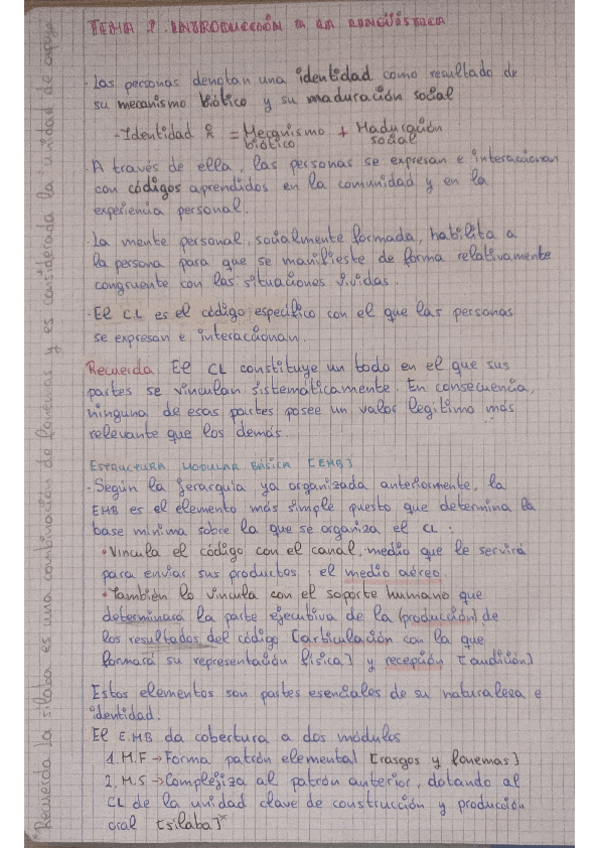 TEMA 2. INTRODUCCIÓN A LA LINGÜÍSTICA
· Las personas denotan una identidad como resultado de
su mecanismo biótico y su maduración social
- Identidad = Mecanismo biótico + Maduración social
· A través de ella, las personas se expresan e interaccionan
con códigos aprendidos en la comunidad y en la
experiencia personal.
· La mente personal, socialmente formada, habilita a
la persona para que se manifieste de forma relativamente
congruente con las situaciones vividas.
· El CL es el código específico con el que las personas
se expresan e interaccionan.
Recuerda. El CL constituye un todo en el que sus
partes se vinculan sistemáticamente. En consecuencia,
ninguna de esas partes posee un valor legítimo más
relevante que los demás.
ESTRUCTURA MODULAR BÁSICA [EMB]
· Según la jerarquía ya organizada anteriormente, la
EMB es el elemento más simple puesto que determina la
base mínima sobre la que se organiza el CL:
• Vincula el código con el canal, medio que le servirá
para enviar sus productos: el medio aéreo.
• También lo vincula con el soporte humano que
determinará la parte ejecutiva de la (producción) de
los resultados del código [articulación con la que
formará su representación física] y recepción [audición]
Estos elementos son partes esenciales de su naturaleza e
identidad.
El E.MB da cobertura a dos módulos
1. M.F → Forma patrón elemental [rasgos y fonemas]
2. M.S → Complejiza al patrón anterior, dotando al
CL de la unidad clave de construcción y producción
oral [sílaba]*
*Recuerda la sílaba es una combinación de fonemas y es considerada la unidad de apoyo